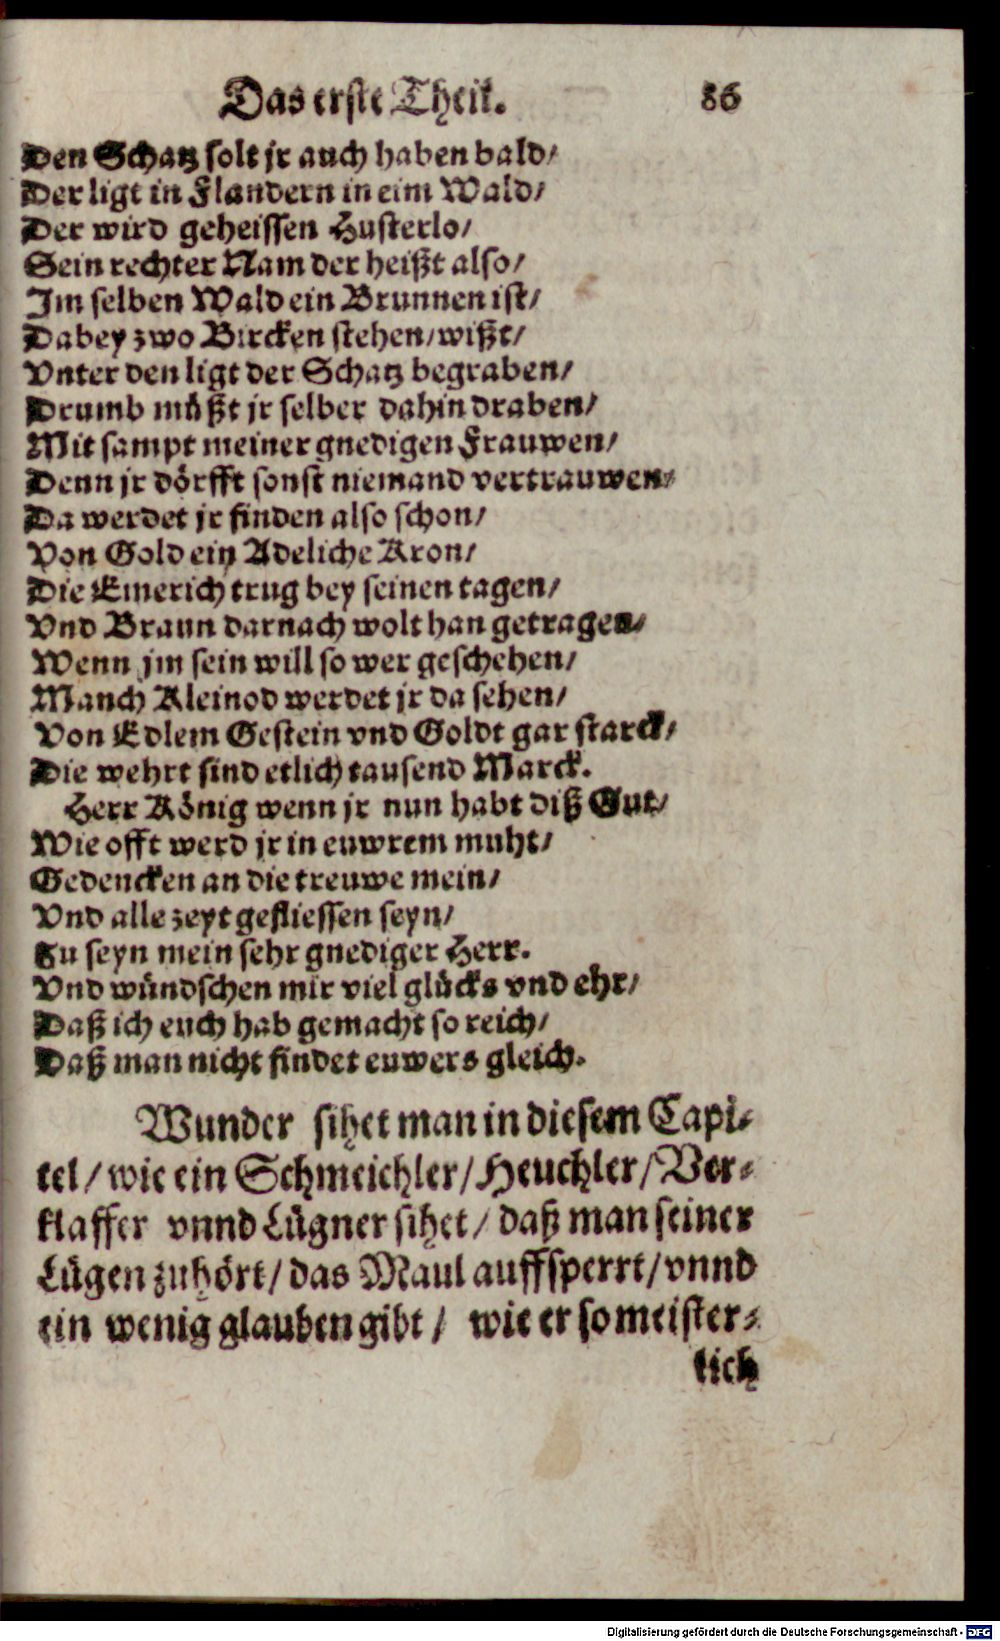 Das erste Theil. 86
Den Schatz solt jr auch haben bald/
Der ligt in Flandern in eim Wald/
Der wird geheissen Husterlo/
Sein rechter Nam der heißt also/
Im selben Wald ein Brunnen ist/
Dabey zwo Bircken stehen/wißt/
Vnter den ligt der Schatz begraben/
Drumb müßt jr selber dahin draben/
Mit sampt meiner gnedigen Frauwen/
Denn jr dörfft sonst niemand vertrauwen/
Da werdet jr finden also schon/
Von Gold ein Adeliche Kron/
Die Emerich trug bey seinen tagen/
Vnd Braun darnach wolt han getragen/
Wenn jm sein will so wer geschehen/
Manch Kleinod werdet jr da sehen/
Von Edlem Gestein vnd Goldt gar starck/
Die wehrt sind etlich tausend Marck.
Herr König wenn jr nun habt diß Gut/
Wie offt werd jr in euwrem muht/
Gedencken an die treuwe mein/
Vnd alle zeyt gefliessen seyn/
Zu seyn mein sehr gnediger Herr.
Vnd wündschen mir viel glücks vnd ehr/
Daß ich euch hab gemacht so reich/
Daß man nicht findet euwers gleich.
Wunder sihet man in diesem Capi⸗
tel/wie ein Schmeichler/Heuchler/Ver⸗
klaffer vnnd Lügner sihet/daß man seiner
Lügen zuhört/das Maul auffsperrt/vnnd
ein wenig glauben gibt/ wie er so meister⸗
lich
Digitalisierung gefördert durch die Deutsche Forschungsgemeinschaft - DFG